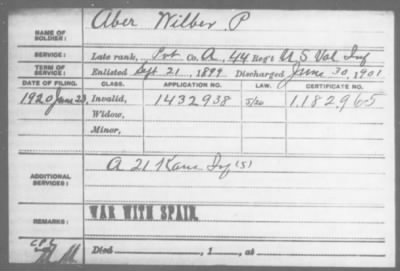 NAME OF SOLDIER: Aber Wilber P
SERVICE: Late rank, Pvt Co. A, 44 Reg't U S Vol Inf
TERM OF SERVICE: Enlisted Sept 21, 1899 Discharged June 30, 1901
DATE OF FILING. CLASS. APPLICATION NO. LAW. CERTIFICATE NO.
1920 June 23, Invalid, 1432938 5/20 1,182,965
Widow,
Minor,
ADDITIONAL SERVICES: A 21 Kans Inf (S)
REMARKS: WAR WITH SPAIN.
Died , 1 , at